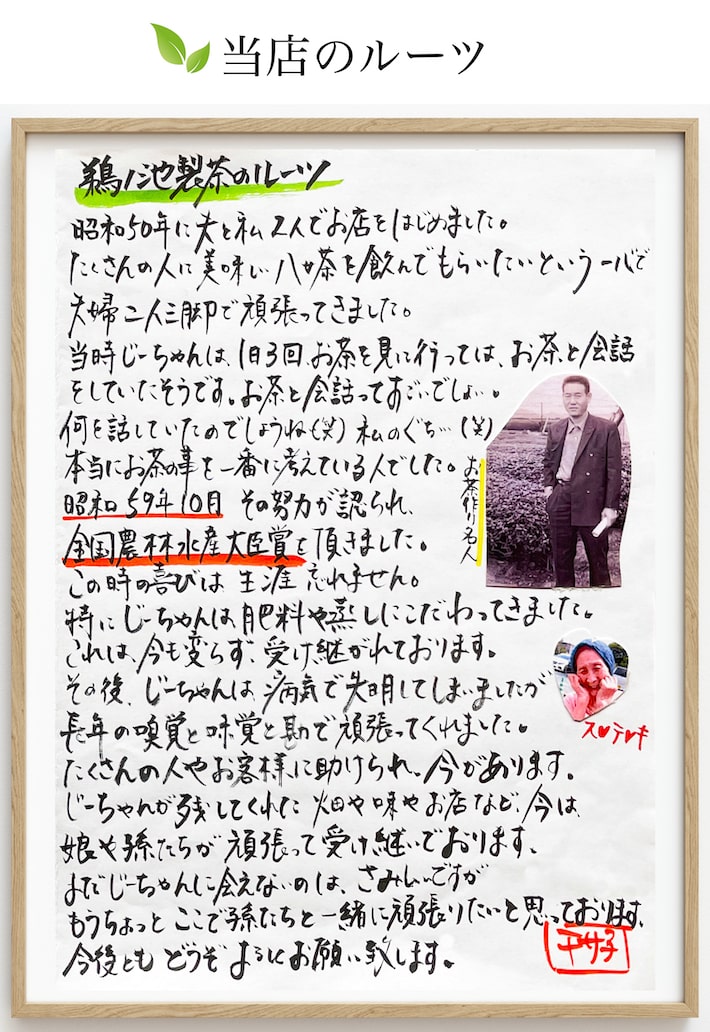 当店のルーツ
鵜ノ池製茶のルーツ
昭和50年に夫と私2人でお店をはじめました。
たくさんの人に美味しい八女茶を飲んでもらいたいという一心で
夫婦二人三脚で頑張ってきました。
当時じーちゃんは、1日3回、お茶を見に行っては、お茶と会話
をしていたそうです。お茶と会話ってすごいでしょ。
何を話していたのでしょうね(笑) 私のぐち…(笑)
本当にお茶の事を一番に考えている人でした。
昭和59年10月 その努力が認られ、
全国農林水産大臣賞を頂きました。
お茶作り名人
この時の喜びは生涯忘れません。
特にじーちゃんは、肥料や蒸しにこだわってきました。
これは、今も変らず、受け継がれております。
その後、じーちゃんは、病気で失明してしまいましたが
長年の嗅覚と味覚と勘で頑張ってくれました。
ス♥テ♥キ
たくさんの人やお客様に助けられ、今があります。
じーちゃんが残してくれた畑や味やお店など、今は、
娘や孫たちが頑張って受け継いでおります、
まだじーちゃんに会えないのは、さみしいですが
もうちょっとここで孫たちと一緒に頑張りたいと思っております、
今後ともどうぞよろしくお願い致します。